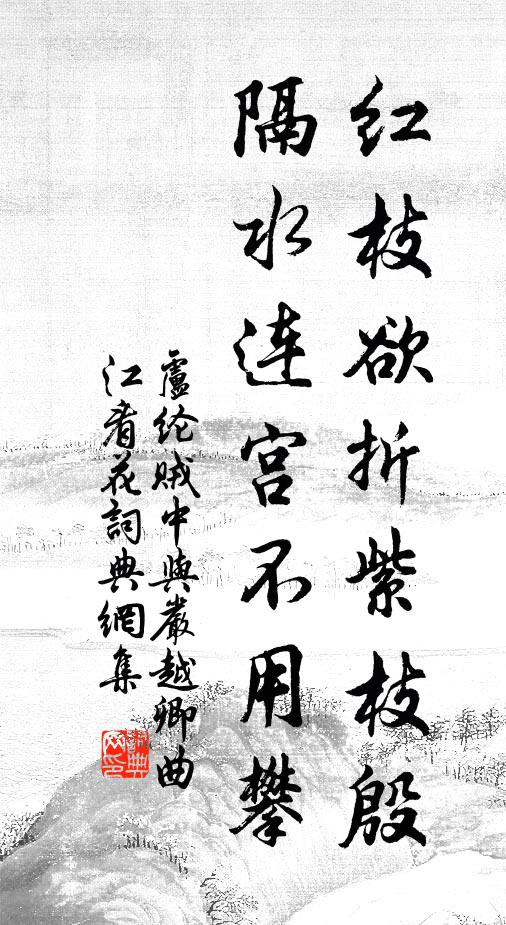 红枝欲折紫枝殷
隔水连宫不用攀
盧纶贼中與嚴越卿曲
江看花詞典網集